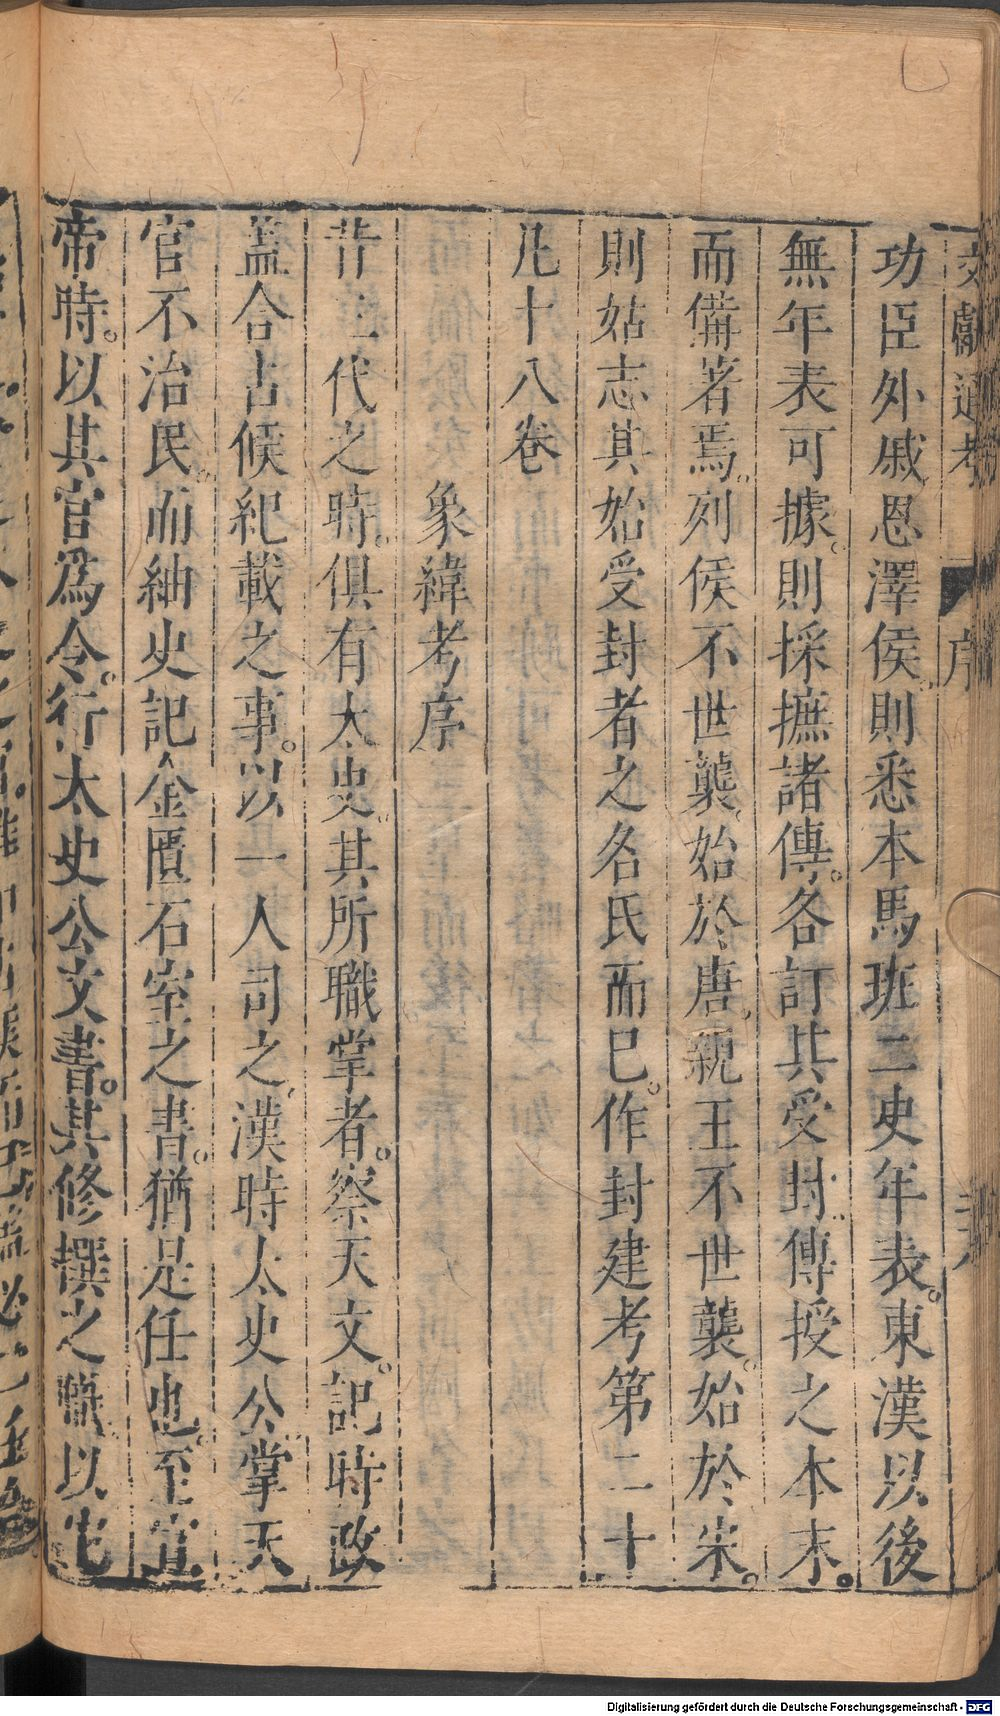 文獻通考　序
功臣外戚恩澤侯則悉本馬班二史年表。東漢以後
無年表可據。則採摭諸傳。各訂其受封傳授之本末。
而備著焉。列侯不世襲。始於唐。親王不世襲。始於宋。
則姑志其始受封者之名氏而已。作封建考第二十
凡十八卷
象緯考序
昔三代之時。俱有太史。其所職掌者。察天文。記時政
蓋合占候紀載之事。以一人司之。漢時太史公掌天
官不治民。而紬史記金匱石室之書。猶是任也。至宣
帝時。以其官爲令。行太史公文書。其修撰之職以它
Digitalisierung gefördert durch die Deutsche Forschungsgemeinschaft - DFG